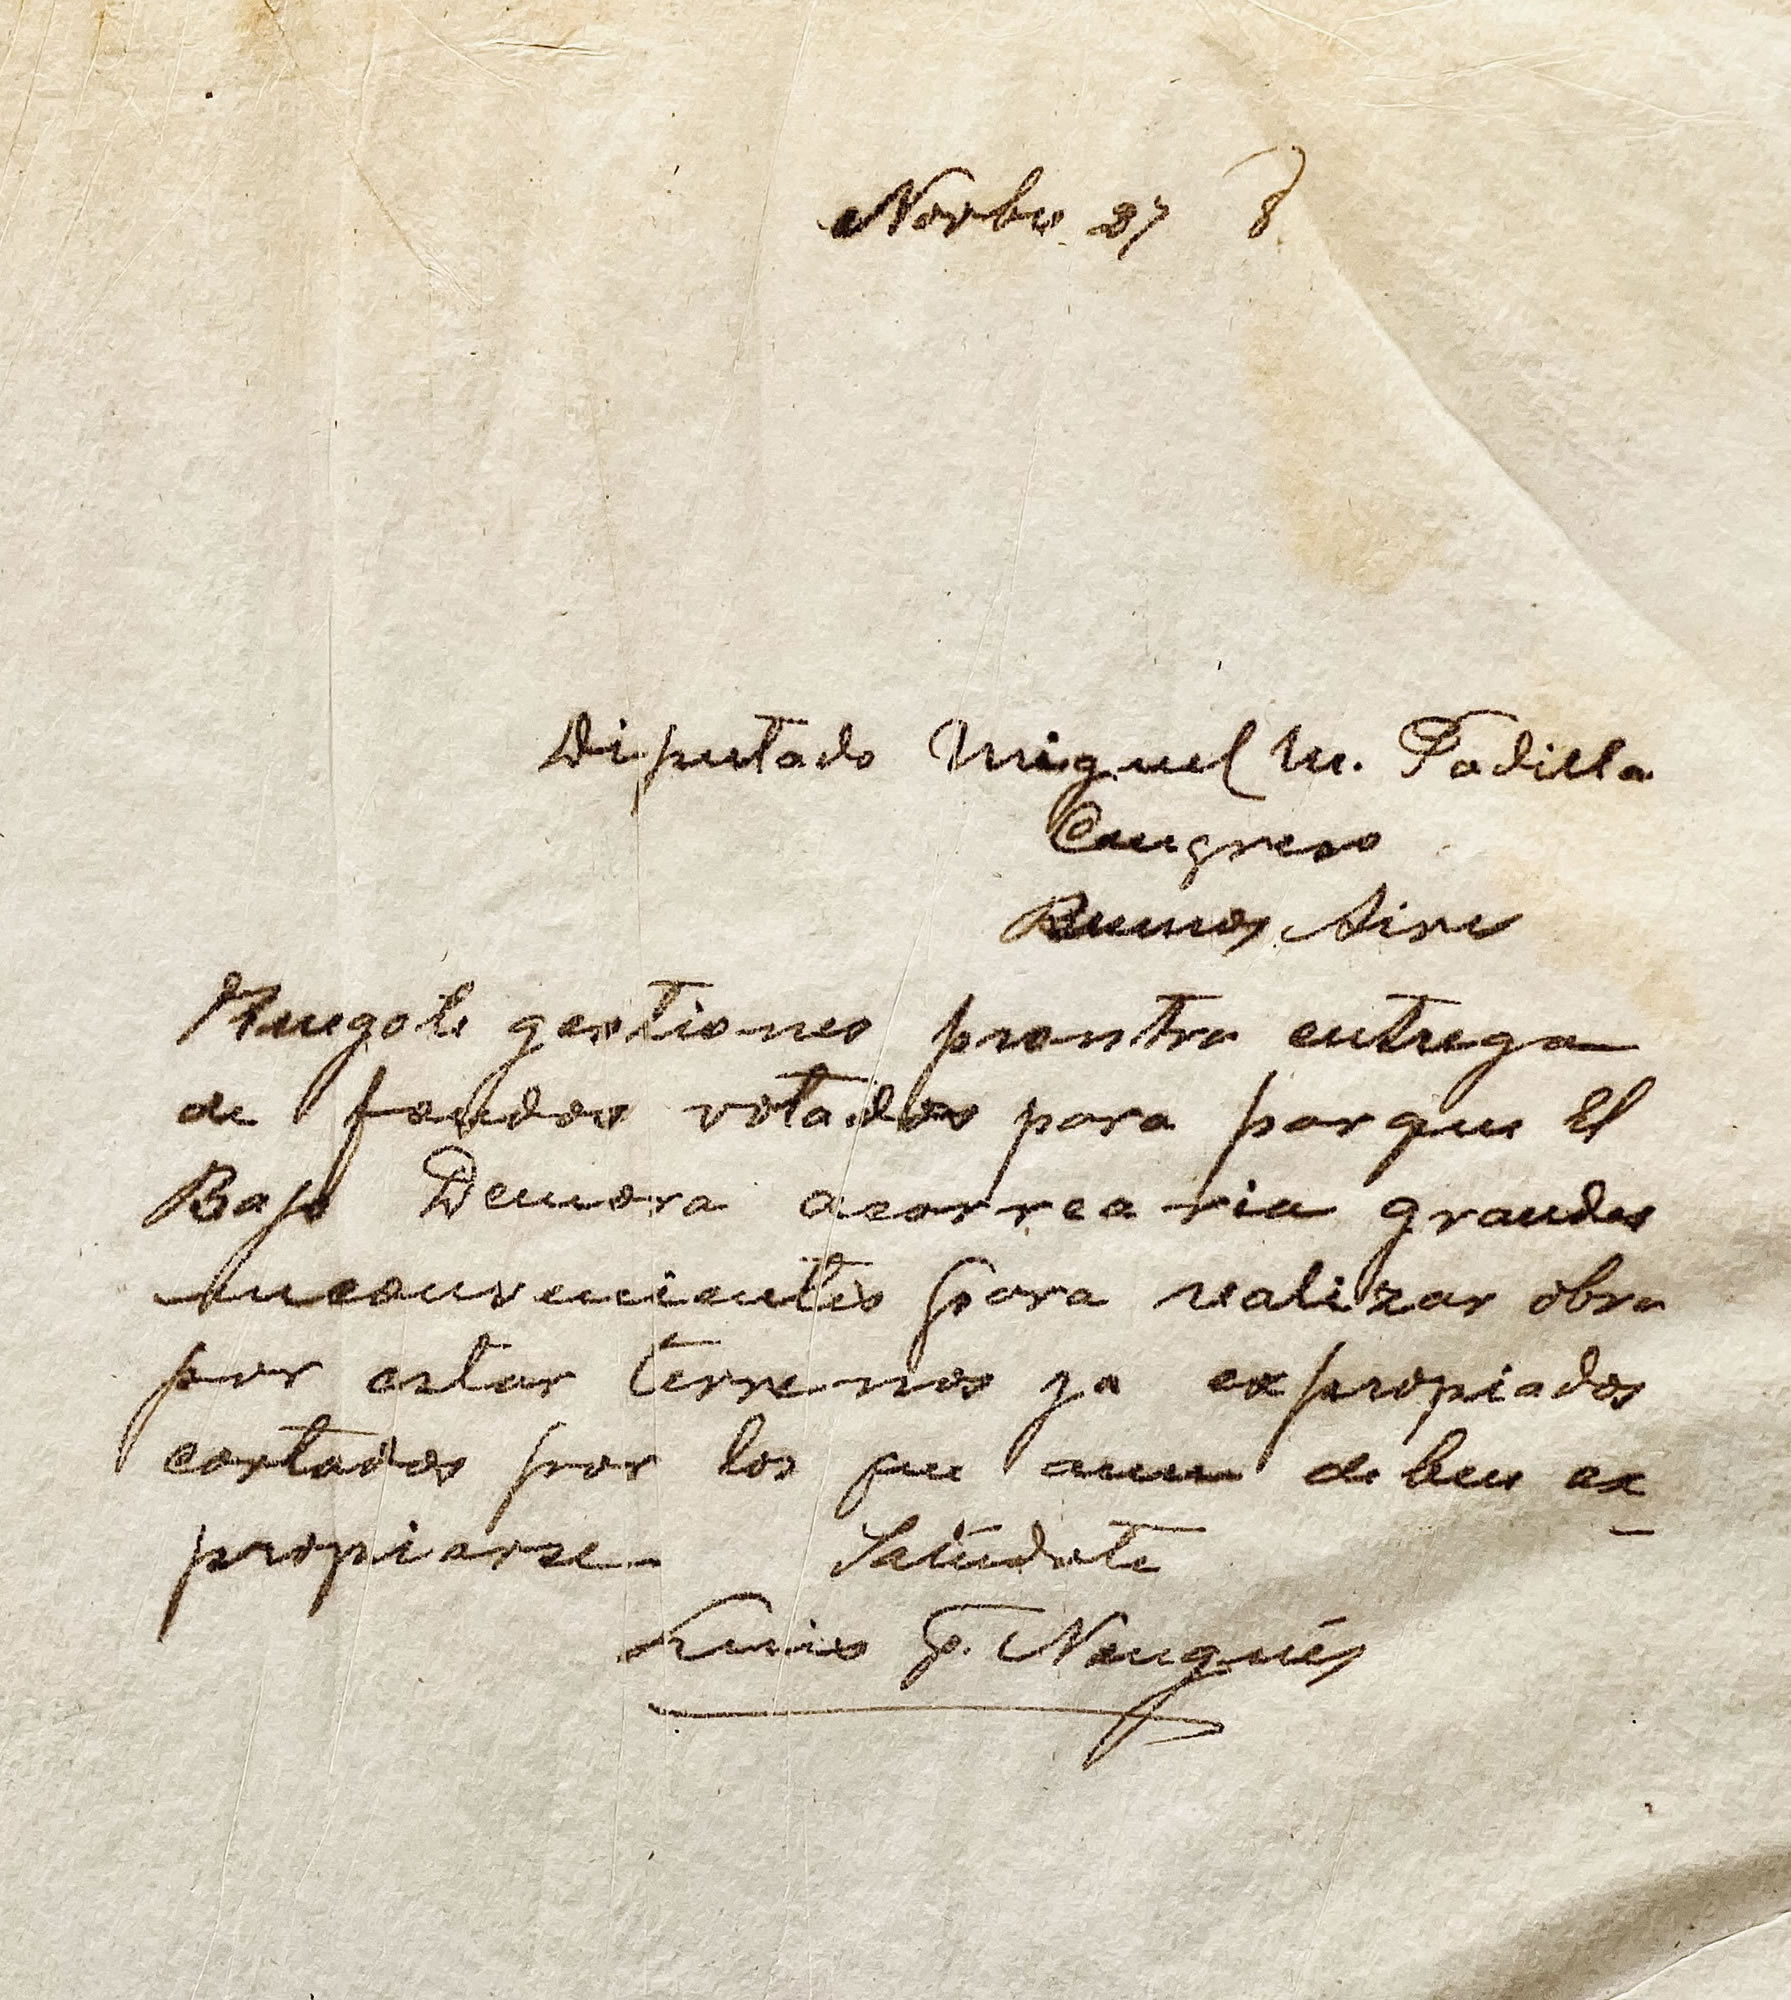 Novbre 27 8
Diputado Miguel M. Padilla
Congreso
Buenos Aires
Ruegote gestiones pronta entrega
de fondos votados para parque El
Bajo Demora acorrearia grandes
inconvenientes para realizar obra
por estar terrenos ya expropiados
cortados por los que aun deben ex
propiarse Saludote
Luis F. Nougués